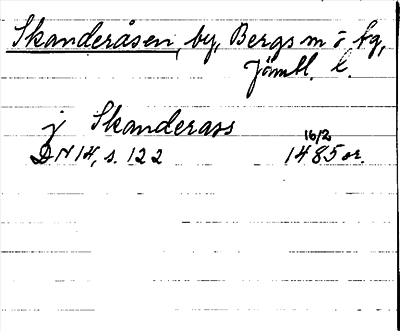 Skanderåsen, by, Bergs sn o. tg,
Jämtl. l.
j Skanderass
16/2
DN 14, s. 122 1485 or.